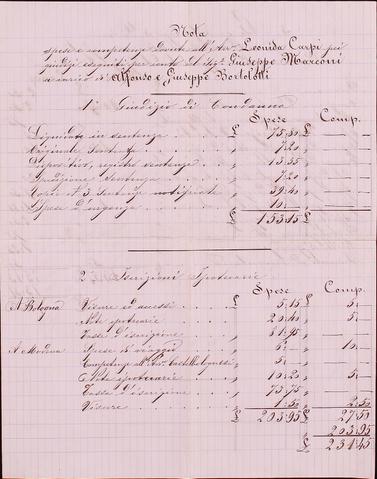 Nota
spese e competenze dovute all'Avv. Leonida Carpi pei
giudizi eseguiti per conto del Sig. Giuseppe Marconi
a carico d'Alfonso e Giuseppe Bortolotti
1° Giudizio di Condanna
Spese Comp.
Liquidate in sentenza £ 75,80 £ —
Originale Sentenza „ 7,20 „ —
Dispositivo, registro sentenza „ 13,55 „ —
Spedizione Sentenza „ 7,20 „ —
Copie N. 3 Sentenze notificate „ 39,40 „ —
Spese d'urgenza „ 10,— „ —
£ 153,15 £ —
2° Iscrizioni Ipotecarie
Spese Comp.
A Bologna Visure ed accessi £ 5,15 £ 5,—
Note ipotecarie „ 20,40 „ 5,—
Tassa d'iscrizione „ 81,95 „ —
A Modena Spese di viaggio „ „ 10,—
Competenze all'Avv. „ 5,— „ —
Note ipotecarie „ 10,20 „ 5,—
Tassa d'iscrizione „ 73,75 „ —
Visure „ 1,50 „ 2,50
£ 203,95 £ 27,50
203,95
£ 231,45